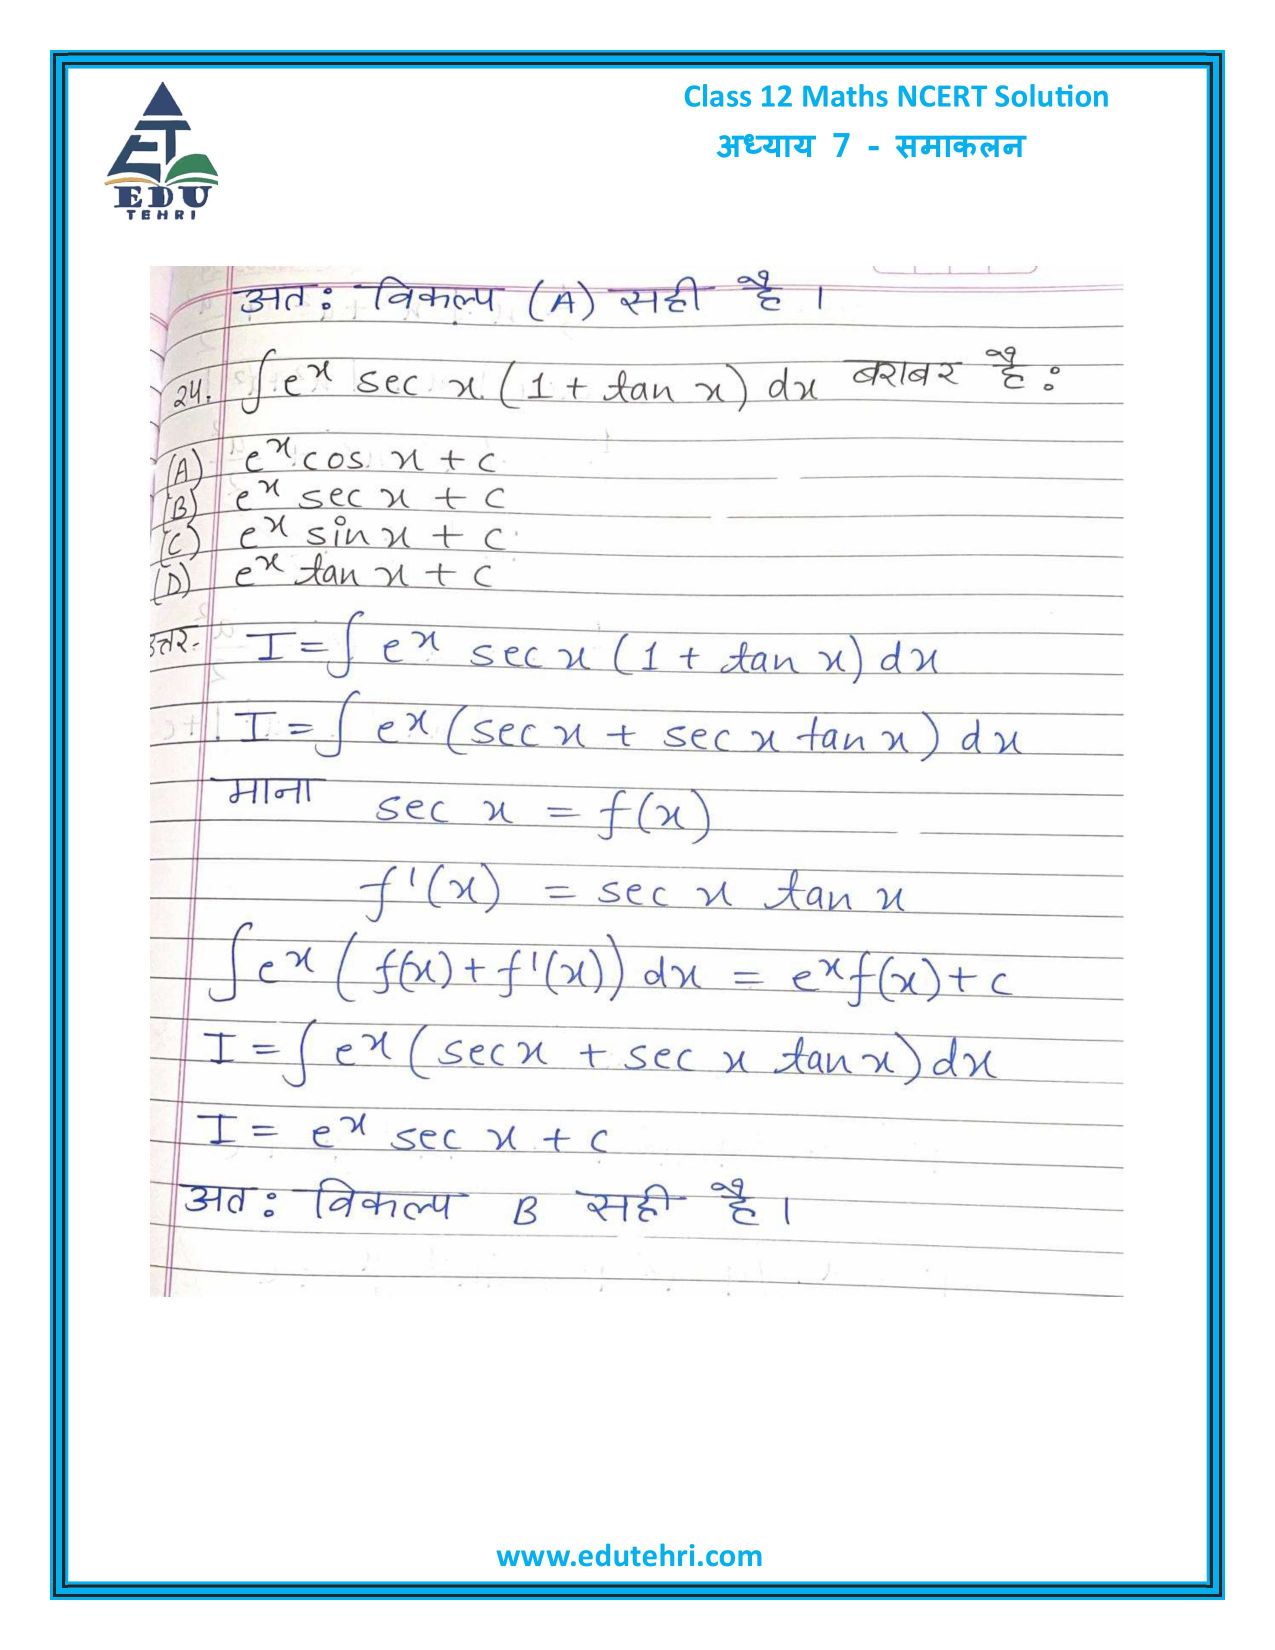 EDU
TEHRI
Class 12 Maths NCERT Solution
अध्याय 7 - समाकलन
अतः विकल्प (A) सही है ।
24. ∫ e^x sec x (1 + tan x) dx बराबर है :
(A) e^x cos x + c
(B) e^x sec x + c
(C) e^x sin x + c
(D) e^x tan x + c
उत्तर- I = ∫ e^x sec x (1 + tan x) dx
I = ∫ e^x (sec x + sec x tan x) dx
माना sec x = f(x)
f'(x) = sec x tan x
∫ e^x (f(x) + f'(x)) dx = e^x f(x) + c
I = ∫ e^x (sec x + sec x tan x) dx
I = e^x sec x + c
अतः विकल्प B सही है ।
www.edutehri.com